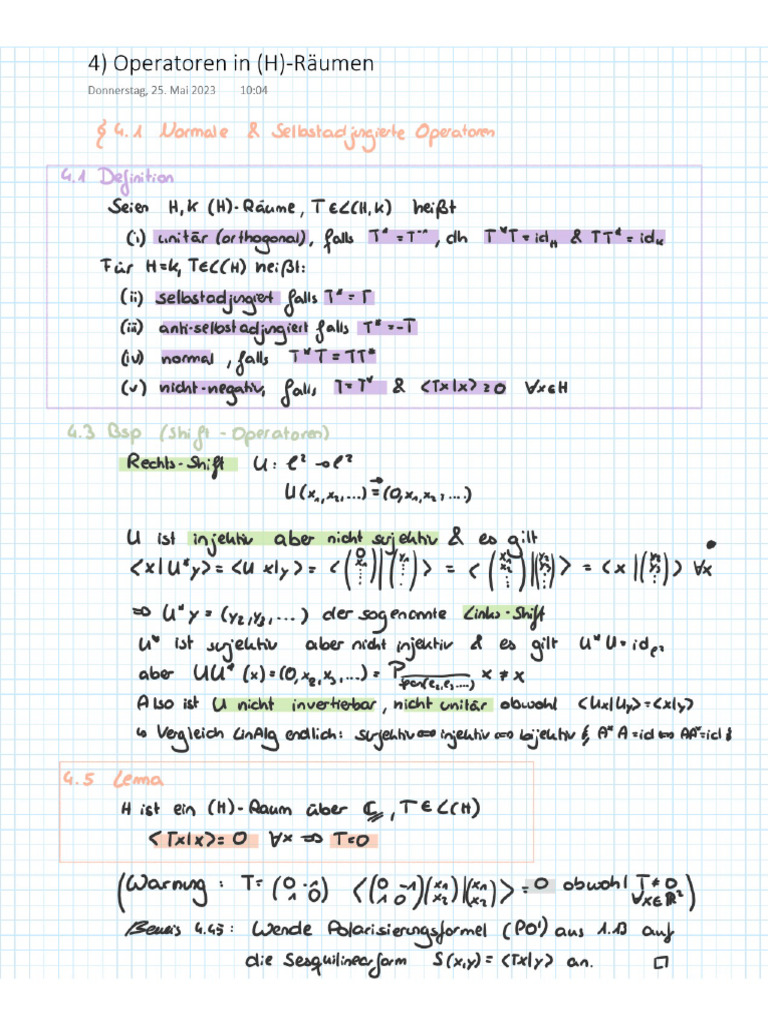 4) Operatoren in (H)-Räumen
Donnerstag, 25. Mai 2023 10:04
§ 4.1 Normale & Selbstadjungierte Operatoren
4.1 Definition
Seien H,K (H)-Räume, T∈L(H,K) heißt
(i) unitär (orthogonal), falls T* = T⁻¹, dh T*T = id_H & TT* = id_K
Für H=K, T∈L(H) heißt:
(ii) selbstadjungiert falls T* = T
(iii) anti-selbstadjungiert falls T* = -T
(iv) normal, falls T*T = TT*
(v) nicht-negativ, falls T=T* & <Tx|x> ≥ 0 ∀x∈H
4.3 Bsp (Shift-Operatoren)
Rechts-Shift U: ℓ² → ℓ²
U(x₁,x₂,...) = (0,x₁,x₂,....)
U ist injektiv aber nicht surjektiv & es gilt
<x|U*y> = <Ux|y> = <(0 x₁ ⋮)|(y₁ ⋮)> = <(x₁ x₂ ⋮)|(y₂ y₃ ⋮)> = <x|(y₂ y₃ ⋮)> ∀x
⇒ U*y = (y₂,y₃,...) der sogenannte Links-Shift
U* ist surjektiv aber nicht injektiv & es gilt U*U = id_ℓ²
aber UU*(x) = (0,x₂,x₃,...) = P_span(e₂,e₃,...) x ≠ x
Also ist U nicht invertierbar, nicht unitär obwohl <Ux|Uy> = <x|y>
↳ Vergleich LinAlg endlich: surjektiv ⇔ injektiv ⇔ bijektiv &, A*A = id ⇔ AA* = id !
4.5 Lema
H ist ein (H)-Raum über ℂ, T∈L(H)
<Tx|x> = 0 ∀x ⇒ T=0
(Warnung: T = (0 -1 / 1 0) <(0 -1 / 1 0)(x₁ x₂)|(x₁ x₂)> = 0 obwohl T≠0 ∀x∈ℝ²)
Beweis 4.45: Wende Polarisierungsformel (PO') aus 1.13 auf
die Sesquilinearform S(x,y) = <Tx|y> an. □